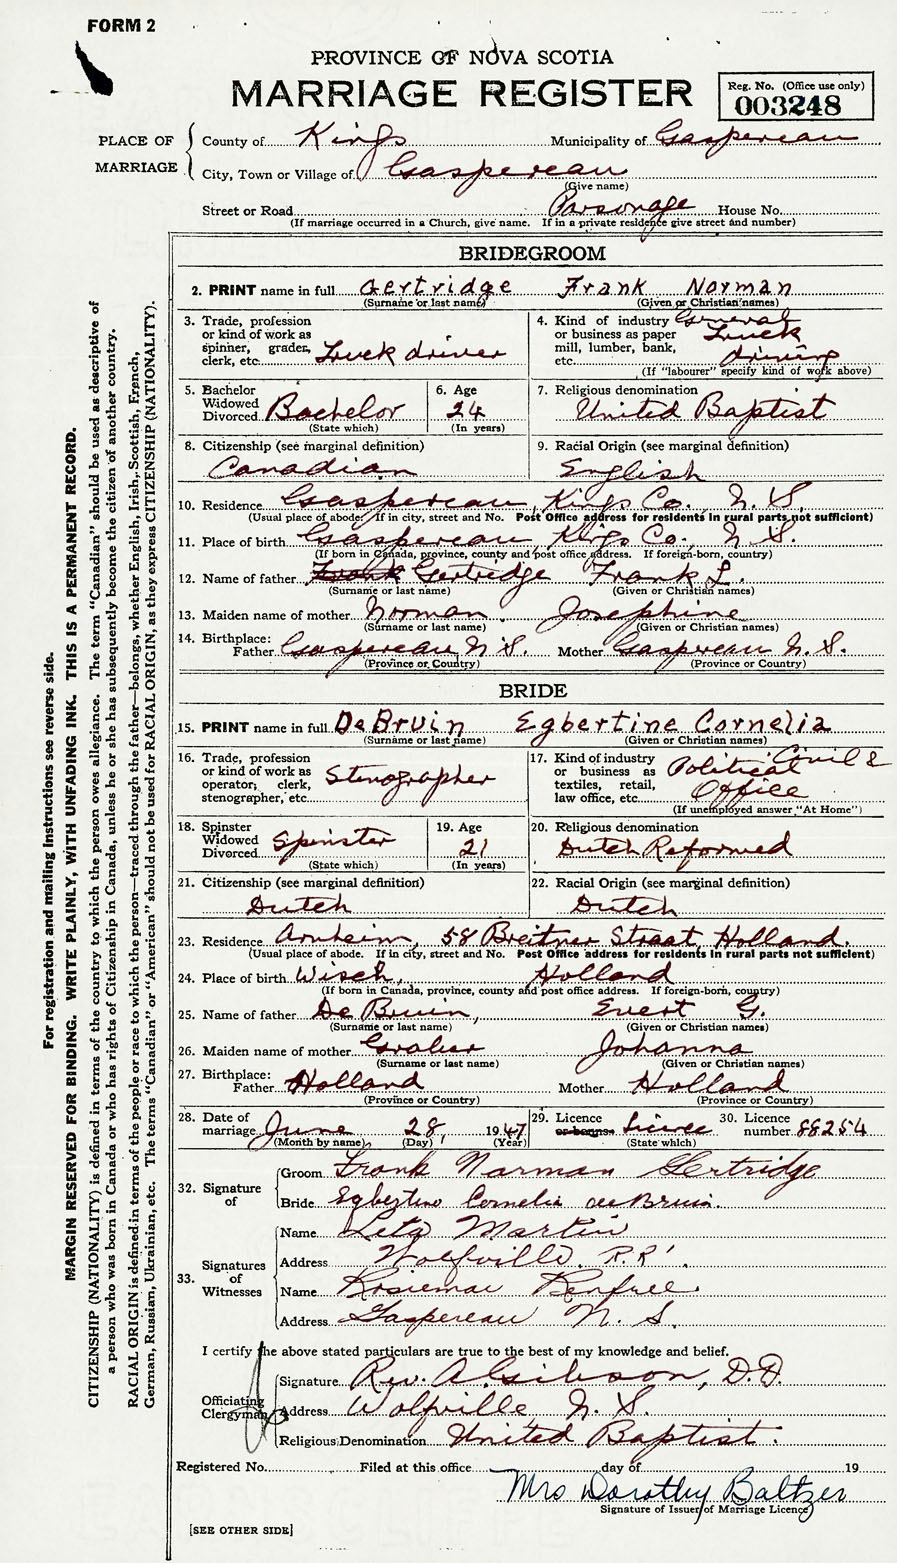 FORM 2
PROVINCE OF NOVA SCOTIA
MARRIAGE REGISTER
Reg. No. (Office use only)
003248
PLACE OF MARRIAGE
County of Kings Municipality of Gaspereau
City, Town or Village of Gaspereau
(Give name)
Street or Road Parsonage House No.
(If marriage occurred in a Church, give name. If in a private residence give street and number)
BRIDEGROOM
2. PRINT name in full Gertridge Frank Norman
(Surname or last name) (Given or Christian names)
3. Trade, profession
or kind of work as
spinner, grader,
clerk, etc. Truck driver
4. Kind of industry General
or business as paper Truck
mill, lumber, bank,
etc. driving
(If "labourer" specify kind of work above)
5. Bachelor
Widowed
Divorced Bachelor
(State which)
6. Age
24
(In years)
7. Religious denomination
United Baptist
8. Citizenship (see marginal definition)
Canadian
9. Racial Origin (see marginal definition)
English
10. Residence Gaspereau, Kings Co., N.S.
(Usual place of abode. If in city, street and No. Post Office address for residents in rural parts not sufficient)
11. Place of birth Gaspereau Kings Co., N.S.
(If born in Canada, province, county and post office address. If foreign-born, country)
12. Name of father Frank Gertridge Frank L.
(Surname or last name) (Given or Christian names)
13. Maiden name of mother Norman Josephine
(Surname or last name) (Given or Christian names)
14. Birthplace:
Father Gaspereau N.S. Mother Gaspereau N.S.
(Province or Country) (Province or Country)
BRIDE
15. PRINT name in full De Bruin Egbertine Cornelia
(Surname or last name) (Given or Christian names)
16. Trade, profession
or kind of work as
operator, clerk,
stenographer, etc. Stenographer
17. Kind of industry Civil &
or business as Political
textiles, retail,
law office, etc. Office
(If unemployed answer "At Home")
18. Spinster
Widowed
Divorced Spinster
(State which)
19. Age
21
(In years)
20. Religious denomination
Dutch Reformed
21. Citizenship (see marginal definition)
Dutch
22. Racial Origin (see marginal definition)
Dutch
23. Residence Arnheim, 58 Breitner Straat, Holland.
(Usual place of abode. If in city, street and No. Post Office address for residents in rural parts not sufficient)
24. Place of birth Wisch, Holland
(If born in Canada, province, county and post office address. If foreign-born, country)
25. Name of father De Bruin, Evert G.
(Surname or last name) (Given or Christian names)
26. Maiden name of mother Johanna
(Surname or last name) (Given or Christian names)
27. Birthplace:
Father Holland Mother Holland
(Province or Country) (Province or Country)
28. Date of
marriage June 28, 1947
(Month by name) (Day) (Year)
29. Licence
or banns
(State which)
30. Licence
number 88254
32. Signature
of
Groom Frank Norman Gertridge
Bride Egbertine Cornelia de Bruin.
33. Signatures
of
Witnesses
Name Leta Martin
Address Wolfville, R.R 1.
Name Rosiemae Renfree.
Address Gaspereau N. S.
I certify the above stated particulars are true to the best of my knowledge and belief.
Officiating
Clergyman
Signature Rev. A. Gibson, D.D.
Address Wolfville N.S.
Religious Denomination United Baptist.
Registered No. Filed at this office day of 19
Mrs Dorothy Baltzer
Signature of Issuer of Marriage Licence
[SEE OTHER SIDE]
For registration and mailing instructions see reverse side.
MARGIN RESERVED FOR BINDING. WRITE PLAINLY, WITH UNFADING INK. THIS IS A PERMANENT RECORD.
CITIZENSHIP (NATIONALITY) is defined in terms of the country to which the person owes allegiance. The term "Canadian" should be used as descriptive of
a person who was born in Canada or who has rights of Citizenship in Canada, unless he or she has subsequently become the citizen of another country.
RACIAL ORIGIN is defined in terms of the people or race to which the person—traced through the father—belongs, whether English, Irish, Scottish, French,
German, Russian, Ukrainian, etc. The terms "Canadian" or "American" should not be used for RACIAL ORIGIN, as they express CITIZENSHIP (NATIONALITY).